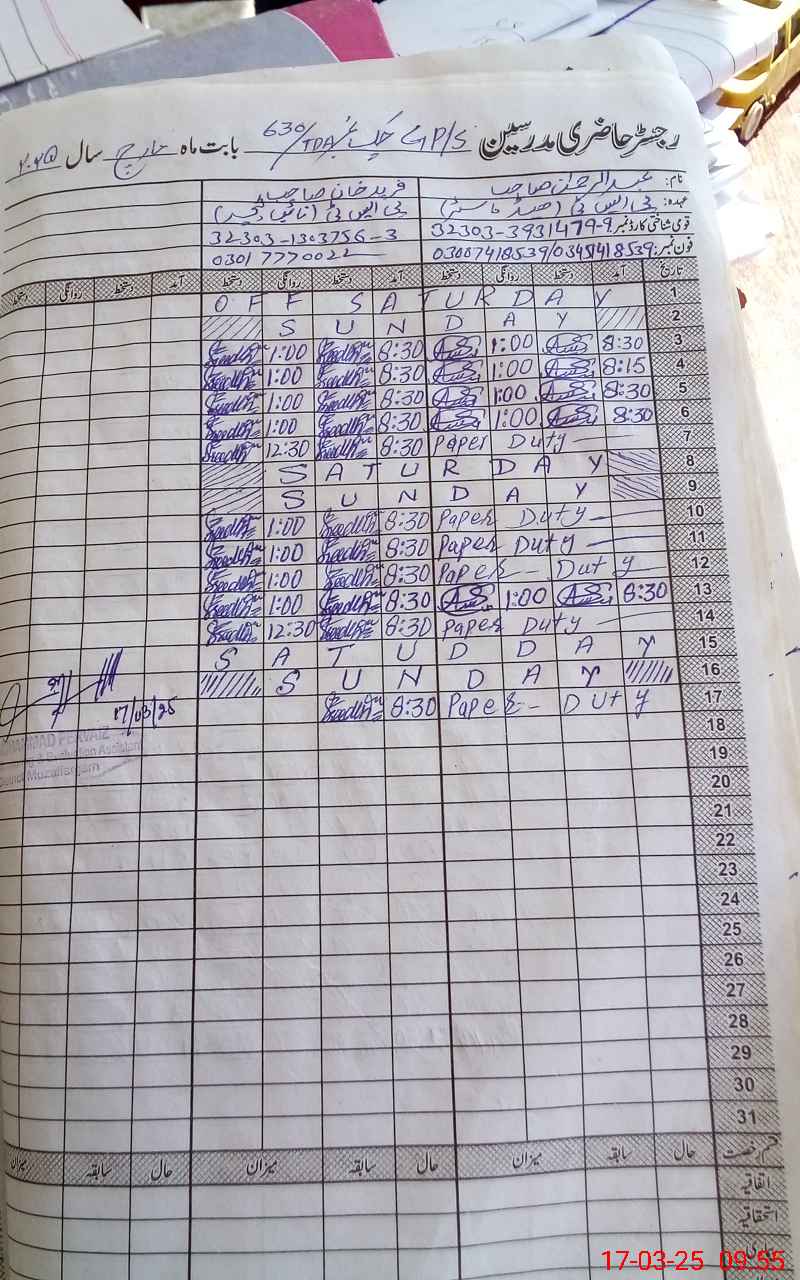 رجسٹر حاضری مدرسین G P/S چک نمبر 630/TDA بابت ماہ مارچ سال ۲۰۲۵
نام: عبدالرحمٰن صاحب فرید خان صاحب
عہدہ: پی ایس ٹی (ہیڈ ماسٹر) پی ایس ٹی (نائب
قومی شناختی کارڈ نمبر 32303-3931479-9 32303-1303756-3
فون نمبر: 03007418539/03451418539 03017770022
تاریخ آمد دستخط روانگی دستخط آمد دستخط روانگی دستخط آمد دستخط روانگی دستخط
1 OFF SATURDAY
2 SUNDAY
3 8:30 1:00 8:30 1:00
4 8:15 1:00 8:30 1:00
5 8:30 1:00 8:30 1:00
6 8:30 1:00 8:30 1:00
7 Paper Duty 8:30 12:30
8 SATURDAY
9 SUNDAY
10 Paper Duty 8:30 1:00
11 Paper Duty 8:30 1:00
12 Paper - Duty 8:30 1:00
13 8:30 1:00 8:30 1:00
14 Paper Duty 8:30 12:30
15 SATUDDAY
16 SUNDAY
17 Paper - Duty 8:30
17/03/25
18
MUHAMMAD PERVAIZ
& Evaluation Assistant
19
District Muzaffargarh
20
21
22
23
24
25
26
27
28
29
30
31
قسم رخصت حال سابقہ میزان حال سابقہ میزان حال سابقہ میزان
اتفاقیہ
استحقاقیہ
17-03-25 09:55